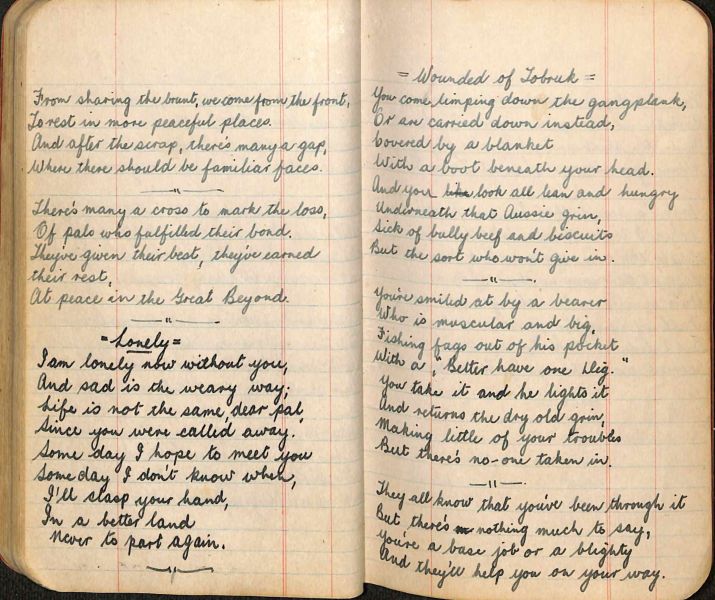 From sharing the brunt, we come from the front,
To rest in more peaceful places.
And after the scrap, there's many a gap,
Where there should be familiar faces.
There's many a cross to mark the loss,
Of pals who fulfilled their bond.
They've given their best, they've earned
their rest,
At peace in the Great Beyond.
=Lonely=
I am lonely now without you,
And sad is the weary way;
Life is not the same, dear pal,
Since you were called away.
Some day I hope to meet you
Some day I don't know when,
I'll clasp your hand,
In a better land
Never to part again.
= Wounded of Tobruk =
You come limping down the gangplank,
Or are carried down instead,
Covered by a blanket
With a boot beneath your head.
And you like look all lean and hungry
Underneath that Aussie grin,
Sick of bully beef and biscuits
But the sort who won't give in.
You're smiled at by a bearer
Who is muscular and big,
Fishing fags out of his pocket
With a, "Better have one Dig."
You take it and he lights it
And returns the dry old grin,
Making little of your troubles
But there's no-one taken in.
They all know that you've been through it
But there's nothing much to say,
You're a base job or a blighty
And they'll help you on your way.